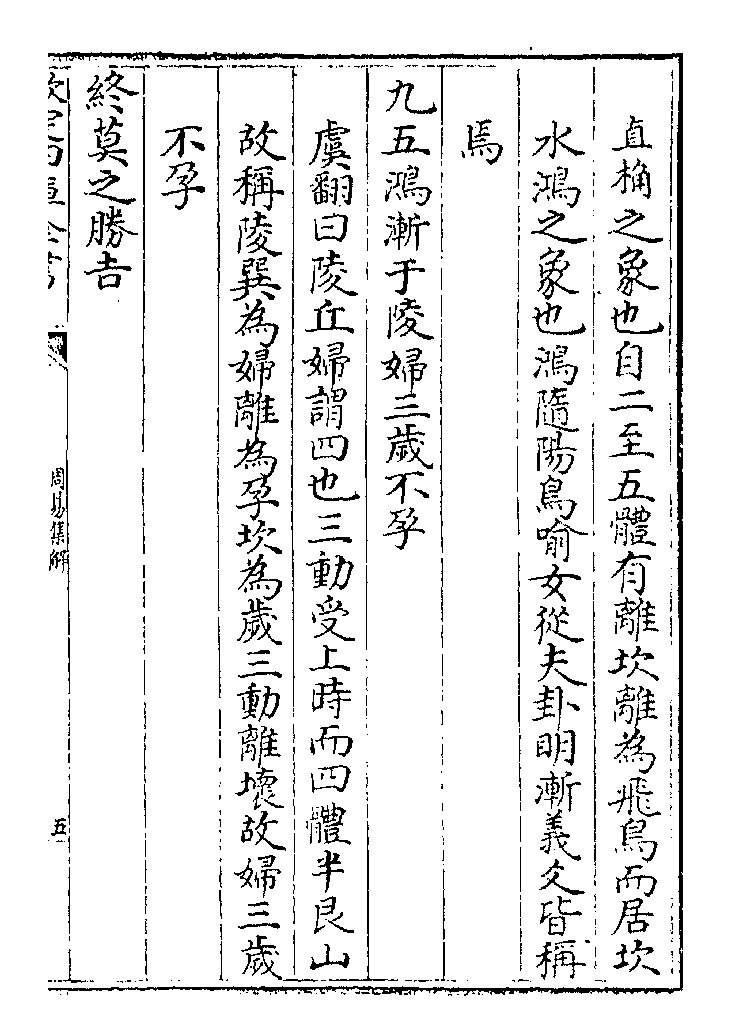 直桷之象也自二至五體有離坎離為飛鳥而居坎
水鴻之象也鴻隨陽鳥喻女從夫卦明漸義爻皆稱
焉
九五鴻漸于陵婦三歲不孕
虞翻曰陵丘婦謂四也三動受上時而四體半艮山
故稱陵巽為婦離為孕坎為歲三動離壞故婦三歲
不孕
終莫之勝吉
欽定四庫全書
周易集解
五